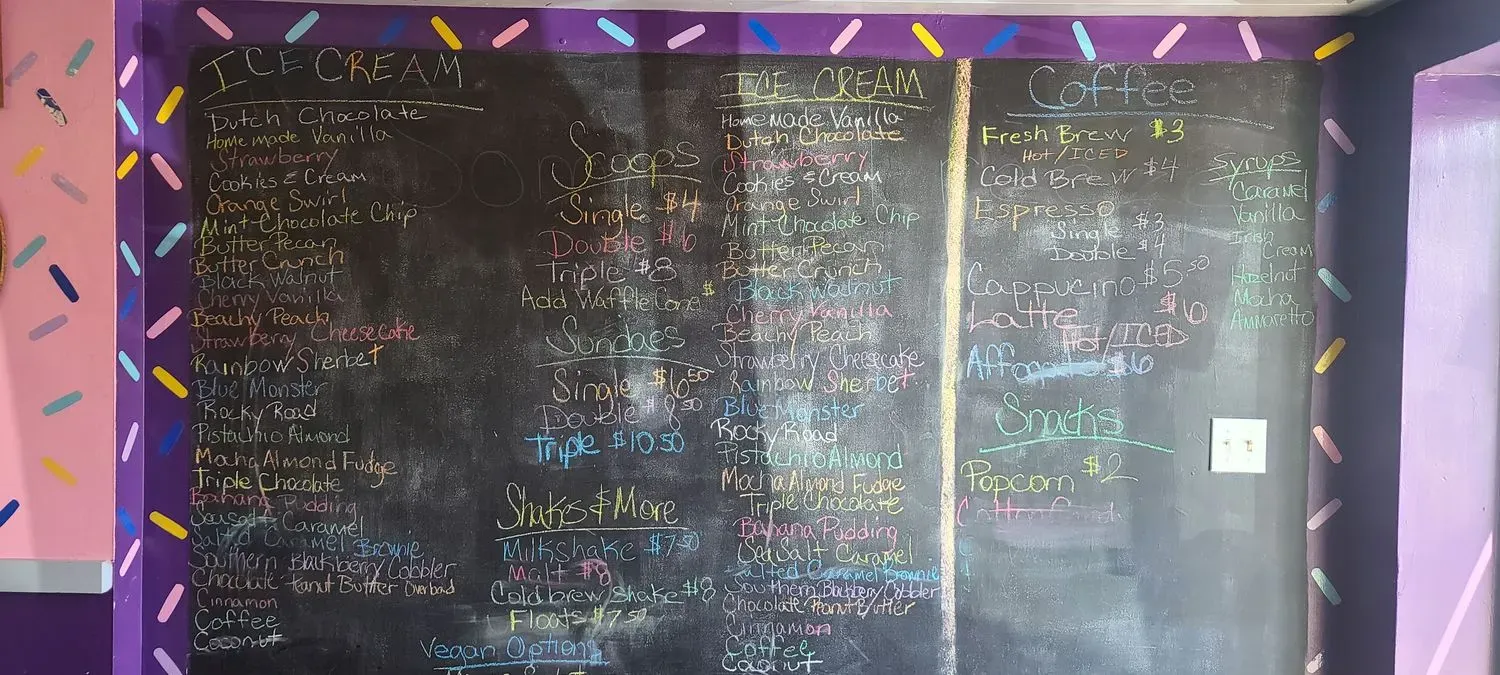 ICE CREAM
Dutch Chocolate
Homemade Vanilla
Strawberry
Cookies & Cream
Orange Swirl
Mint Chocolate Chip
Butter Pecan
Butter Crunch
Black Walnut
Cherry Vanilla
Beachy Peach
Strawberry Cheesecake
Rainbow Sherbet
Blue Monster
Rocky Road
Pistachio Almond
Mocha Almond Fudge
Triple Chocolate
Banana Pudding
Seasalt Caramel
Salted Caramel Brownie
Southern Blackberry Cobbler
Chocolate Peanut Butter Overload
Cinnamon
Coffee
Coconut
Scoops
Single $4
Double $6
Triple $8
Add Waffle Cone $
Sundaes
Single $6.50
Double $8.50
Triple $10.50
Shakes & More
Milkshake $7.50
Malt $8
Cold brew shake $8
Floats $7.50
Vegan Options
ICE CREAM
Homemade Vanilla
Dutch Chocolate
Strawberry
Cookies & Cream
Orange Swirl
Mint Chocolate Chip
Butter Pecan
Butter Crunch
Black Walnut
Cherry Vanilla
Beachy Peach
Strawberry Cheesecake
Rainbow Sherbet
Blue Monster
Rocky Road
Pistachio Almond
Mocha Almond Fudge
Triple Chocolate
Banana Pudding
Sea Salt Caramel
Salted Caramel Brownie
Southern Blackberry Cobbler
Chocolate Peanut Butter
Cinnamon
Coffee
Coconut
Coffee
Fresh Brew $3
HOT/ICED
Cold Brew $4
Espresso
Single $3
Double $4
Cappucino $5.50
Latte $6
Hot/ICED
$6
Snacks
Popcorn $2
Syrups
Caramel
Vanilla
Irish
Cream
Hazelnut
Mocha
Ammaretto